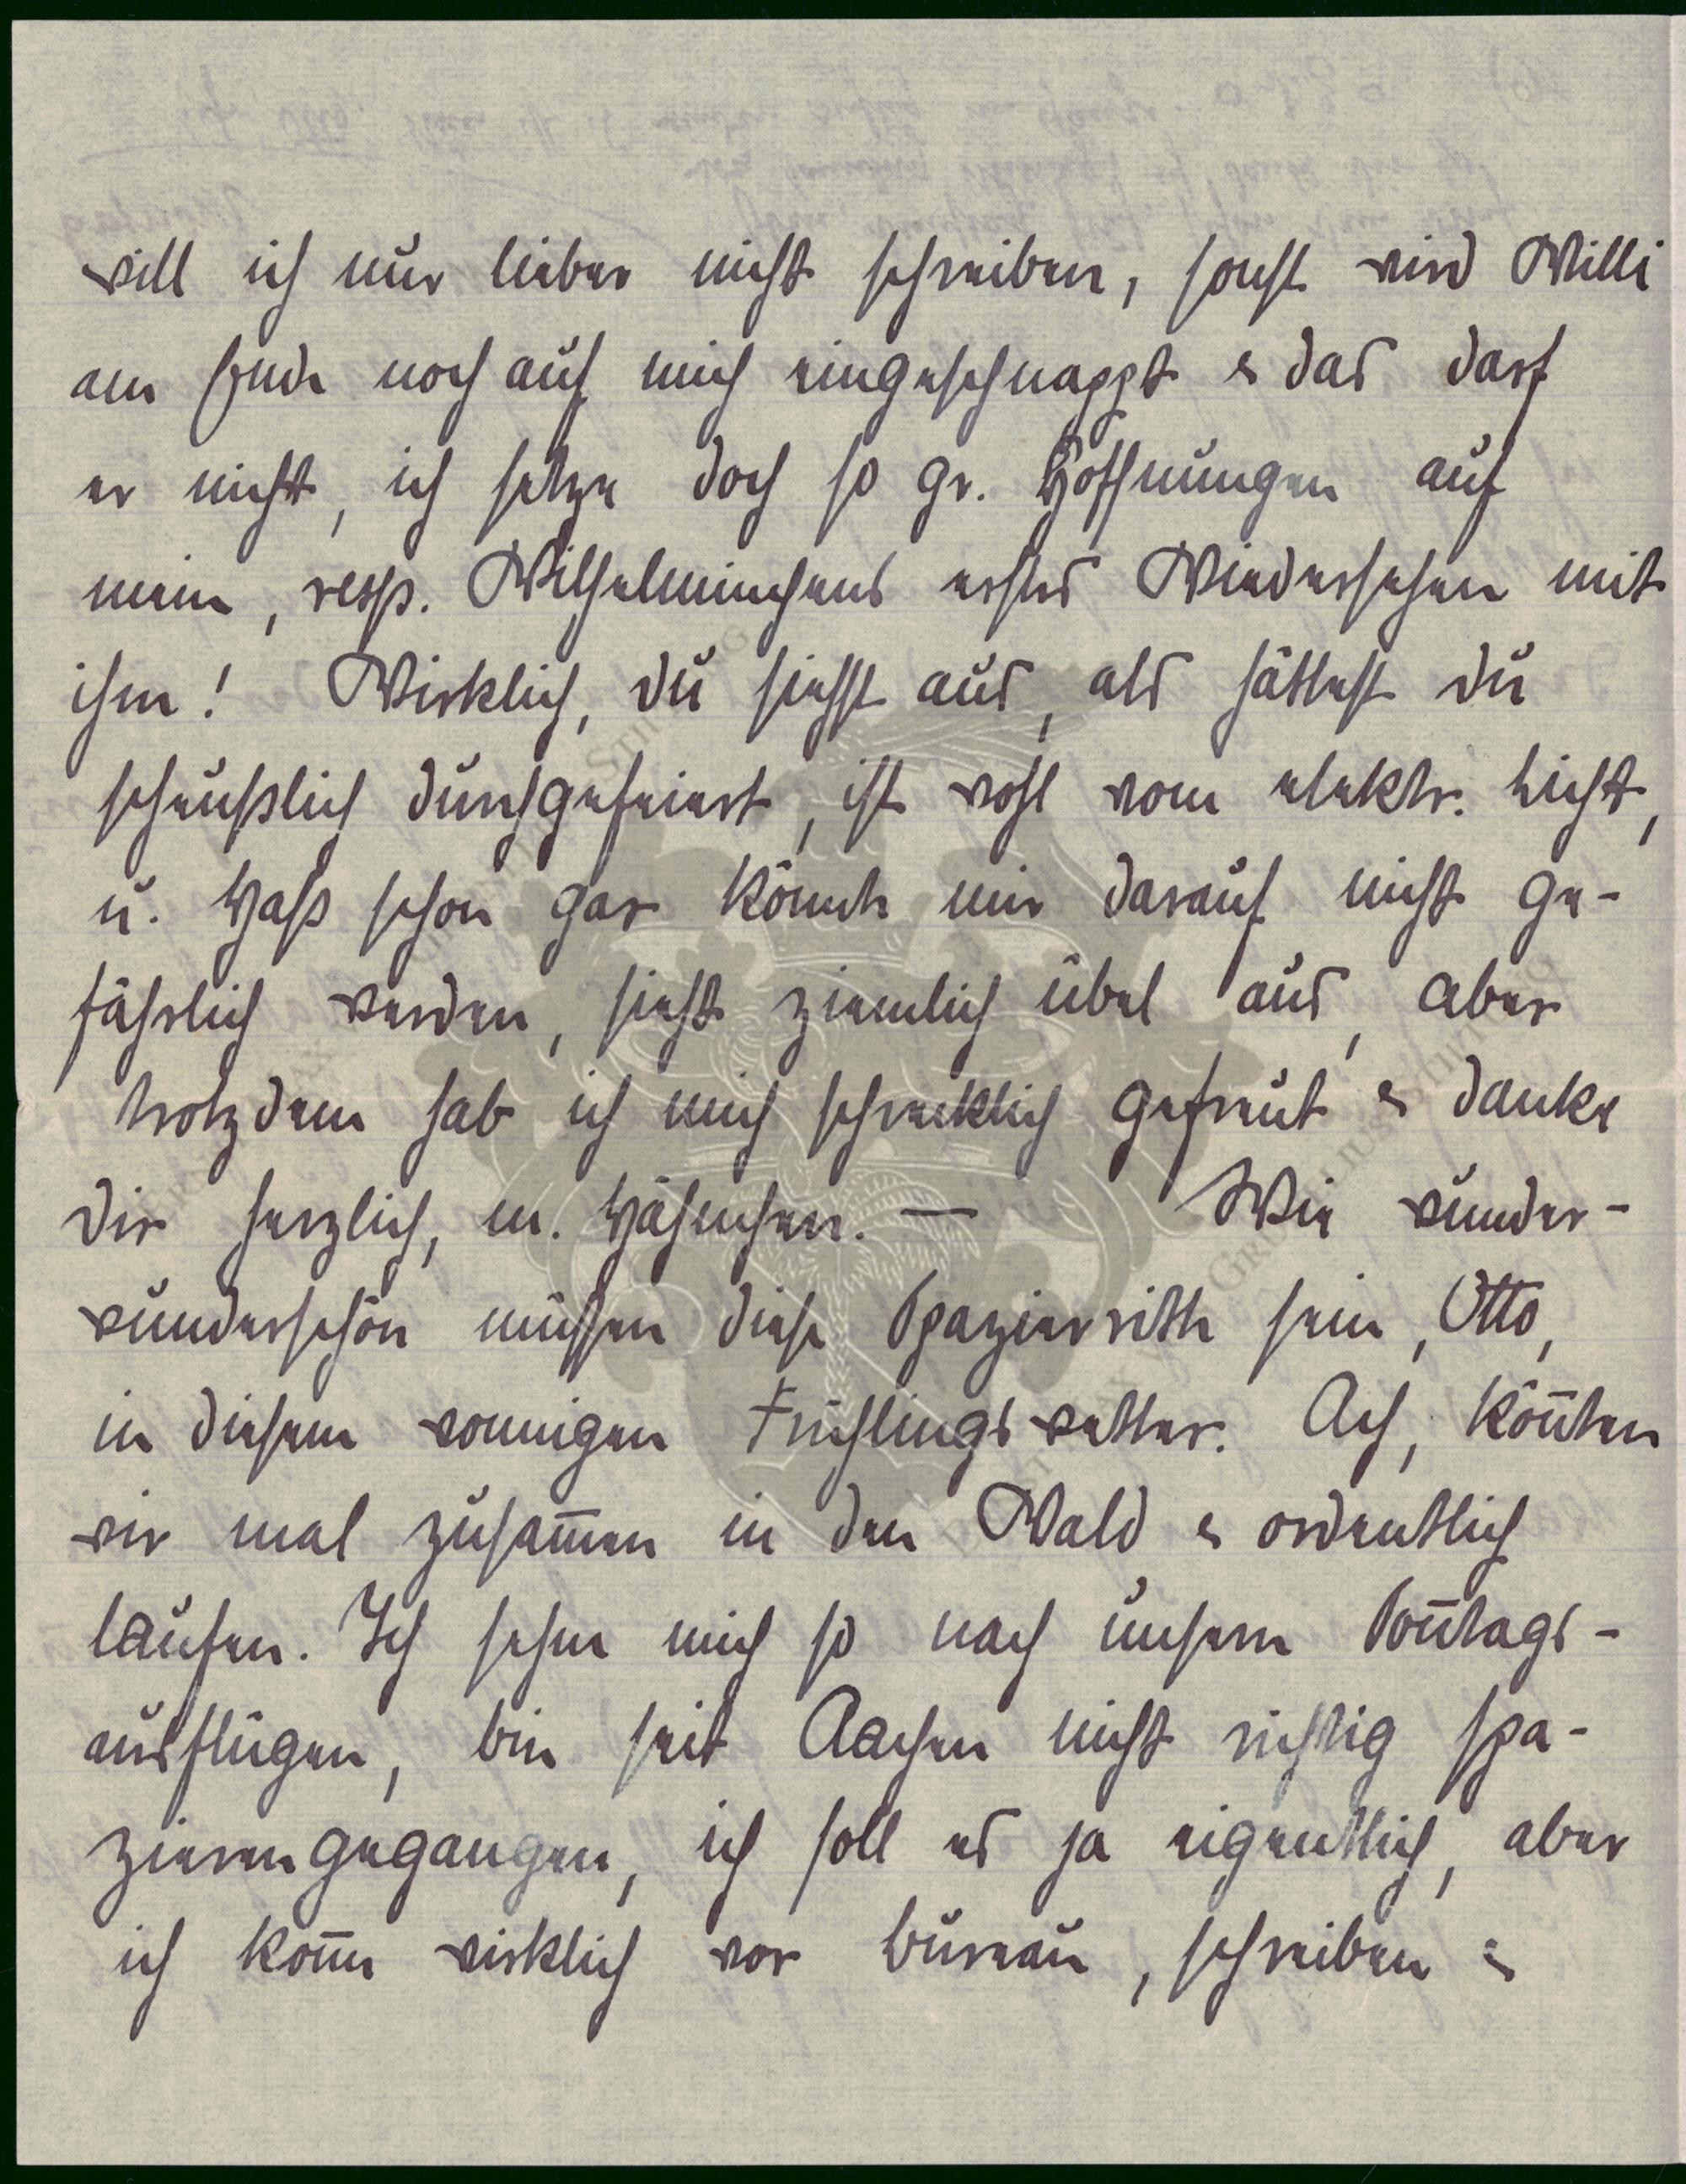 will ich nur lieber nicht schreiben, sonst wird Willi
am Ende noch auf mich eingeschnappt & das darf
er nicht, ich setze doch so gr. Hoffnungen auf
mein, resp. Wilhelminchens erstes Wiedersehen mit
ihm! Wirklich, du siehst aus, als hättest du
scheußlich durchgefeiert, ist wohl vom elektr. Licht,
u. Haß schon gar könnte mir darauf nicht ge-
fährlich werden, sieht ziemlich übel aus, aber
trotzdem hab ich mich schrecklich gefreut & danke
dir herzlich, m. Hähnchen. — Wie wunder-
wunderschön müssen diese Spazierritte sein, Otto,
in diesem wonnigen Frühlingswetter. Ach, kön̄ten
wir mal zusam̄en in den Wald & ordentlich
laufen. Ich sehne mich so nach unsern Son̄tags-
ausflügen, bin seit Aachen nicht richtig spa-
zierengegangen, ich soll es ja eigentlich, aber
ich kom̄e wirklich vor Bureau, schreiben &